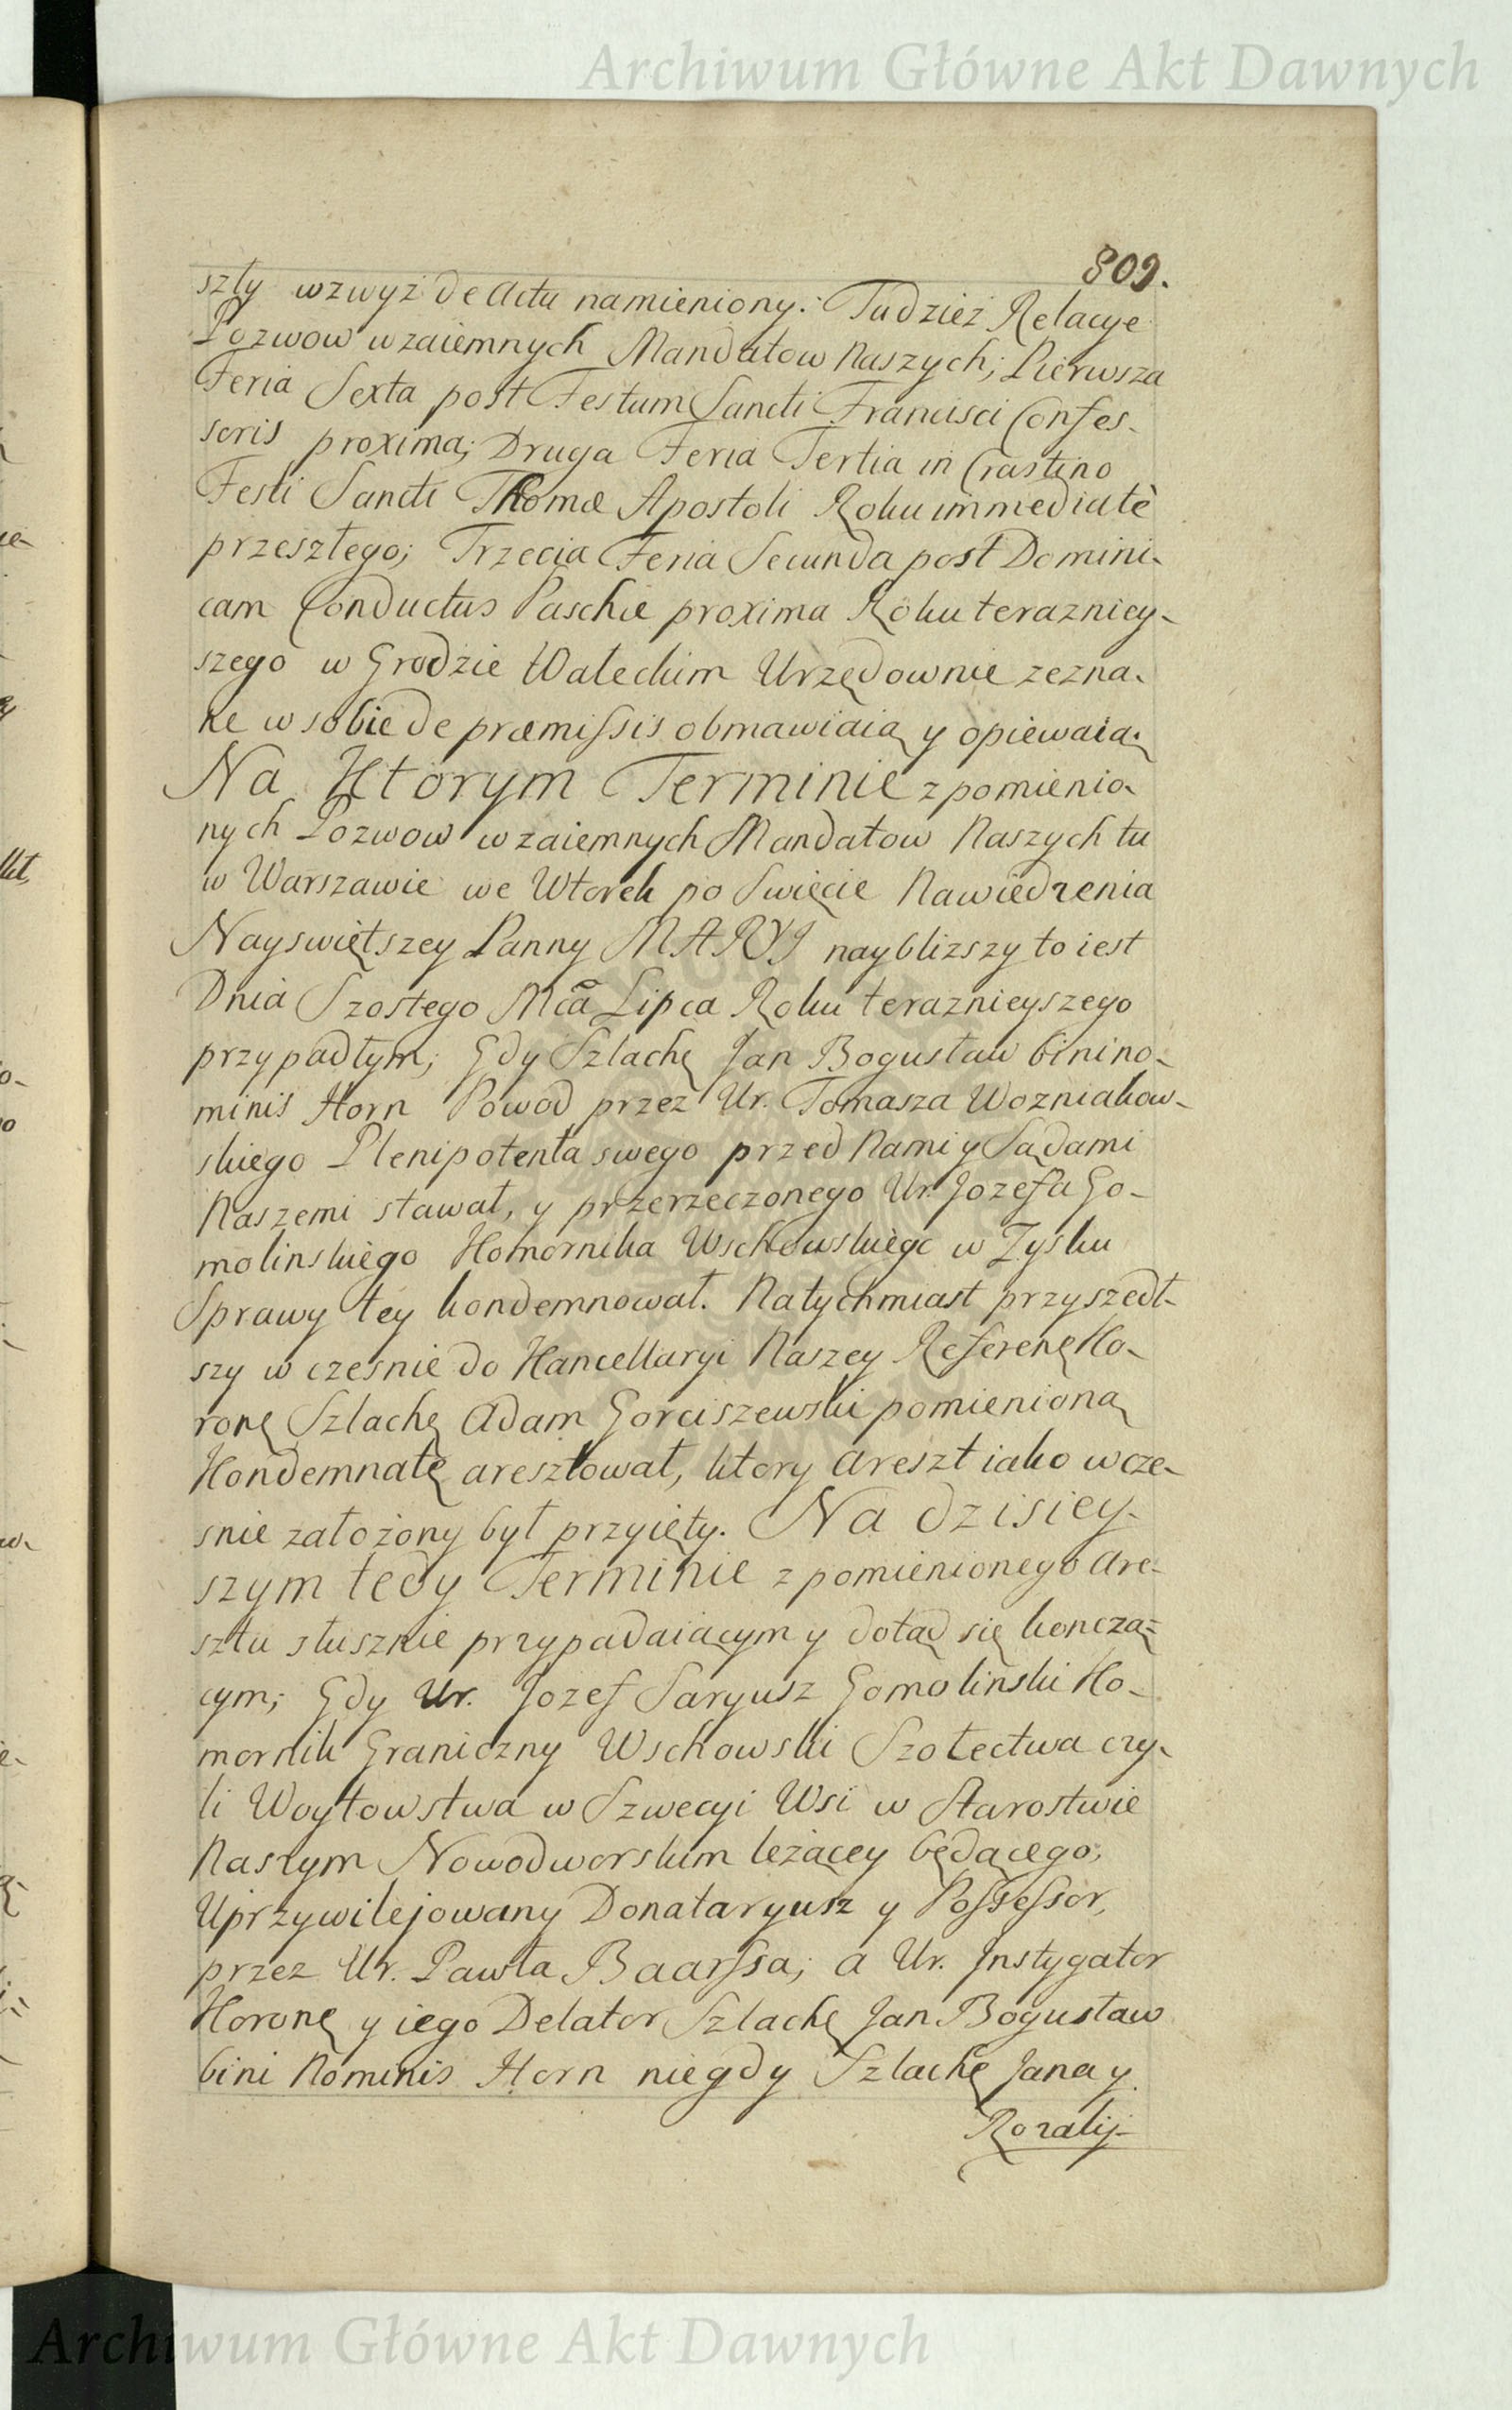 Archiwum Główne Akt Dawnych
809.
szły wzwyż de Actu namieniony. Tudzież Relacye
Pozwow wzaiemnych Mandatow Naszych; Pierwsza
Feria Sexta post Festum Sancti Francisci Confes-
soris proxima; Druga Feria Tertia in Crastino
Festi Sancti Thomæ Apostoli Roku immediatè
przeszłego; Trzecia Feria Secunda post Domini-
cam Conductus Paschæ proxima Roku terazniey-
szego w Grodzie Wałeckim Urzędownie zezna-
ne w sobie de præmissis obmawiaią y opiewaią.
Na Ktorym Terminie z pomienio-
nych Pozwow wzaiemnych Mandatow Naszych tu
w Warszawie we Wtorek po Swięcie Nawiedzenia
Nayswiętszey Panny MARYI naybliższy to iest
Dnia Szostego Mca Lipca Roku teraznieyszego
przypadłym; Gdy Szlachę Jan Bogusław binino-
minis Horn Powod przez Ur. Tomasza Wozniakow-
skiego Plenipotenta swego przed Nami y Sądami
Naszemi stawał, y przerzeczonego Ur. Jozefa Go-
molinskiego Komornika Wschowskiego w Zysku
Sprawy tey kondemnował. Natychmiast przyszedł-
szy w czesnie do Kancellaryi Naszey Referenę Ko-
ronę Szlachę Adam Gorciszewski pomienioną
Kondemnatę aresztował, ktory areszt iako wcze-
snie założony był przyięty. Na dzisiey-
szym tedy Terminie z pomienionego are-
sztu słusznie przypadaiącym y dotąd się koncza=
cym; Gdy Ur. Jozef Saryusz Gomolinski Ko-
mornik Graniczny Wschowski Szołectwa czy-
li Woytowstwa w Szwecyi Wsi w Starostwie
Naszym Nowodworskim leżącey będącego,
Uprzywilejowany Donataryusz y Possessor,
przez Ur. Pawła Baarssa; a Ur. Instygator
Koronę y iego Delator Szlachę Jan Bogusław
bini Nominis Horn niegdy Szlachę Jana y
Rozalij
Archiwum Główne Akt Dawnych